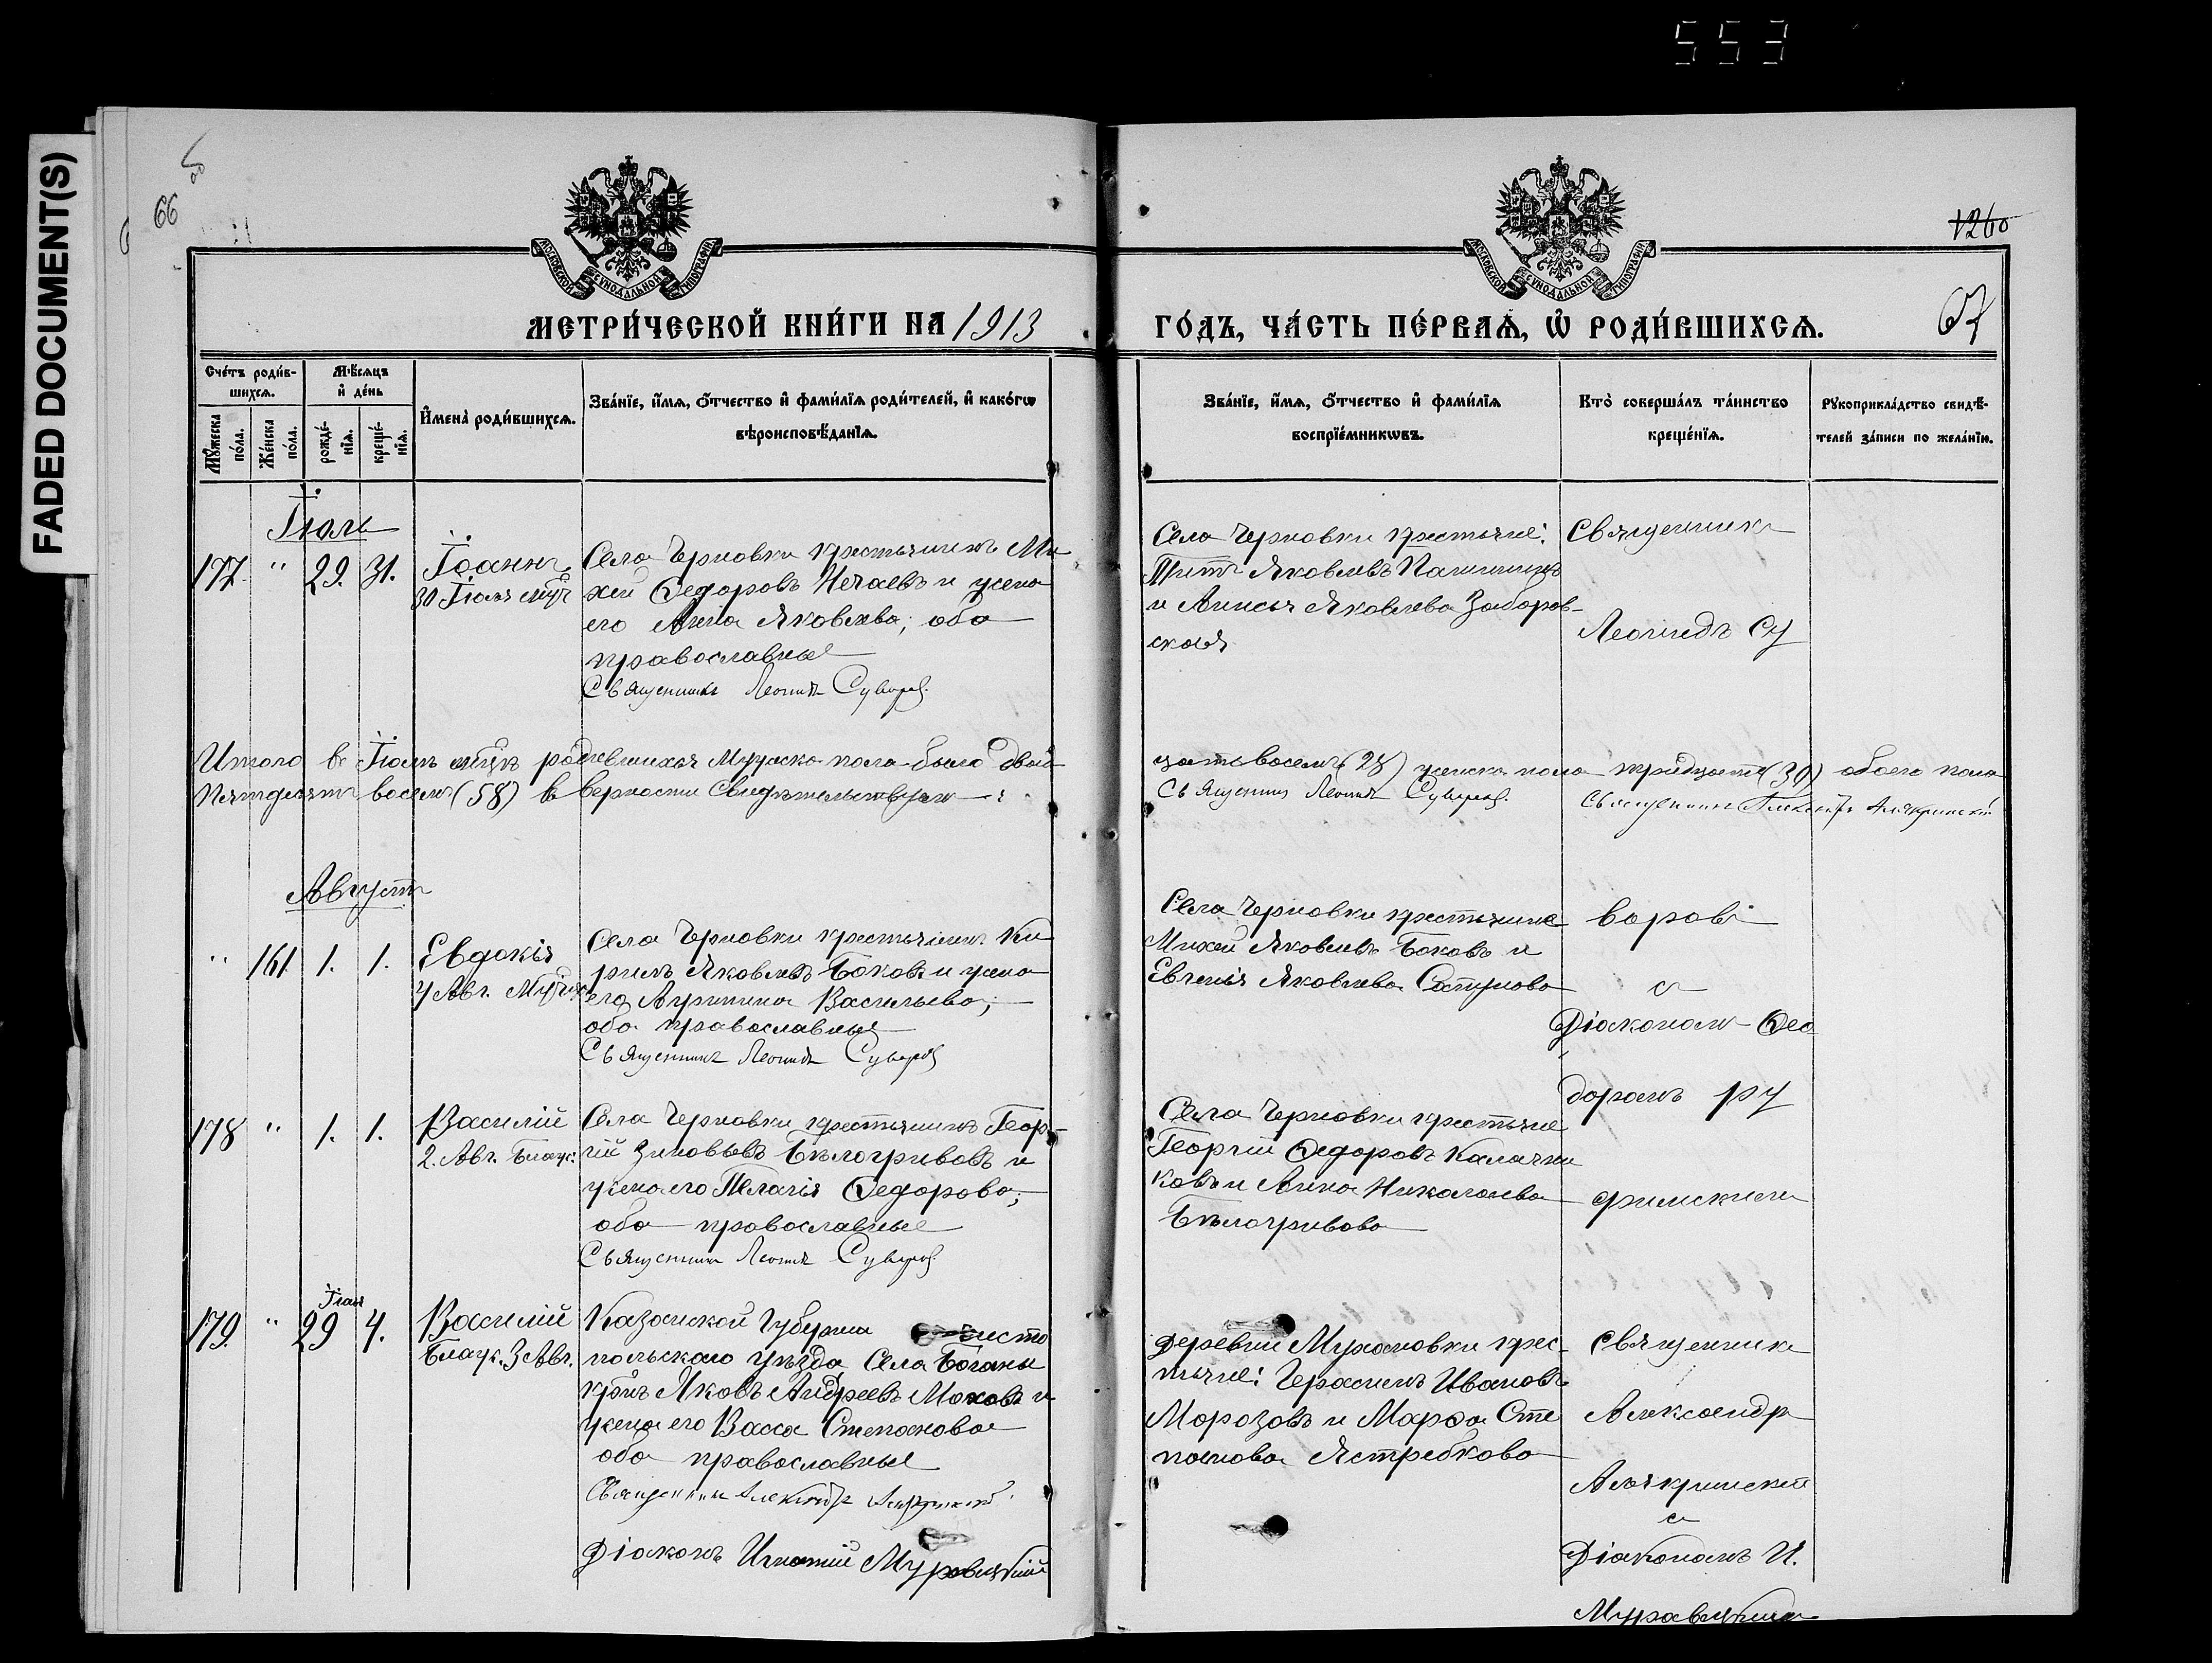 553
FADED DOCUMENT(S)
66 об
1260
67
МОСКОВСКОЙ СѴНОДАЛЬНОЙ ТИПОГРАФІИ
МОСКОВСКОЙ СѴНОДАЛЬНОЙ ТИПОГРАФІИ
МЕТРИ́ЧЕСКОЙ КНИ́ГИ НА 1913
ГО́ДЪ, ЧА́СТЬ ПЕ́РВАѦ, Ѽ РОДИ́ВШИХСѦ.
Сче́тъ роди́в-
шихсѧ.
Мѣ́сѧцъ
и҆ де́нь
Мꙋ́жеска
по́ла.
Же́нска
по́ла.
рожде́-
нїѧ.
креще́-
нїѧ.
И҆мена̀ роди́вшихсѧ.
Зва́нїе, и҆́мѧ, ѻ҆́тчество и҆ фами́лїѧ роди́телей, и҆ како́гѡ
вѣроисповѣ́данїѧ.
Зва́нїе, и҆́мѧ, ѻ҆́тчество и҆ фами́лїѧ
воспрїе́мникѡвъ.
Кто̀ соверша́лъ та́инство
креще́нїѧ.
Рꙋкоприкла́дство свидѣ́-
телей за́писи по жела́нїю.
Іюль
177 " 29. 31. Іоаннъ
30 Іюля муч
Села Черновки крестьянинъ Ми
хей Ѳедоровъ Нечаевъ и жена
его Анна Яковлева; оба
православные
Священникъ Леонидъ Суворов
Села Черновки крестьяне:
Титъ Яковлевъ
и Анисья Яковлева Заборов-
ская
Священникъ
Леонидъ Су
Итого въ Іюлѣ мѣцѣ родившихся Мужска пола было двад
цать восемь (28) женска пола тридцать (30) обоего пола
Пятдесятъ восемь (58) въ верности свидѣтельствуемъ:
Священник Леонид Суворов.
Священникъ Александръ Алякринскій
Август
" 161 1. 1. Евдокія
4 Авг.
Села Черновки крестьянинъ Ки
рилъ Яковлевъ Боковъ и жена
его Агрипина Васильева;
оба православные
Священникъ Леонидъ Суворов
Села Черновки крестьяне
Михей Яковлевъ Боковъ и
Евгенія Яковлева
воровъ
съ
Діакономъ Ѳео
доромъ Ру
фимскимъ
178 " 1. 1. Василій
2. Авг. Блаж.
Села Черновки крестьянинъ Геор-
гій Зиновьевъ Бѣлогривовъ и
жена его Пелагія Ѳедорова;
оба православные
Священник Леонид Суворов.
Села Черновки крестьяне
Георгій Ѳедоровъ Калачни
ковъ и Анна Николаева
Бѣлогривова
179. " Іюля 29 4. Василій
Блаж. 3 Авг.
Казанской Губерніи Чисто
польскаго уѣзда Села Боганы
крнъ Яковъ Андреевъ Моховъ и
жена его Васса Степанова
оба православные
Священникъ Александръ Алякринскій
Діаконъ Игнатій Муравицкій
деревни Мухановки крес-
тьяне: Герасимъ Ивановъ
Морозовъ и Марѳа Сте
панова Ястребкова
Священникъ
Александръ
Алякринскій
съ
Діакономъ И.
Муравицкимъ